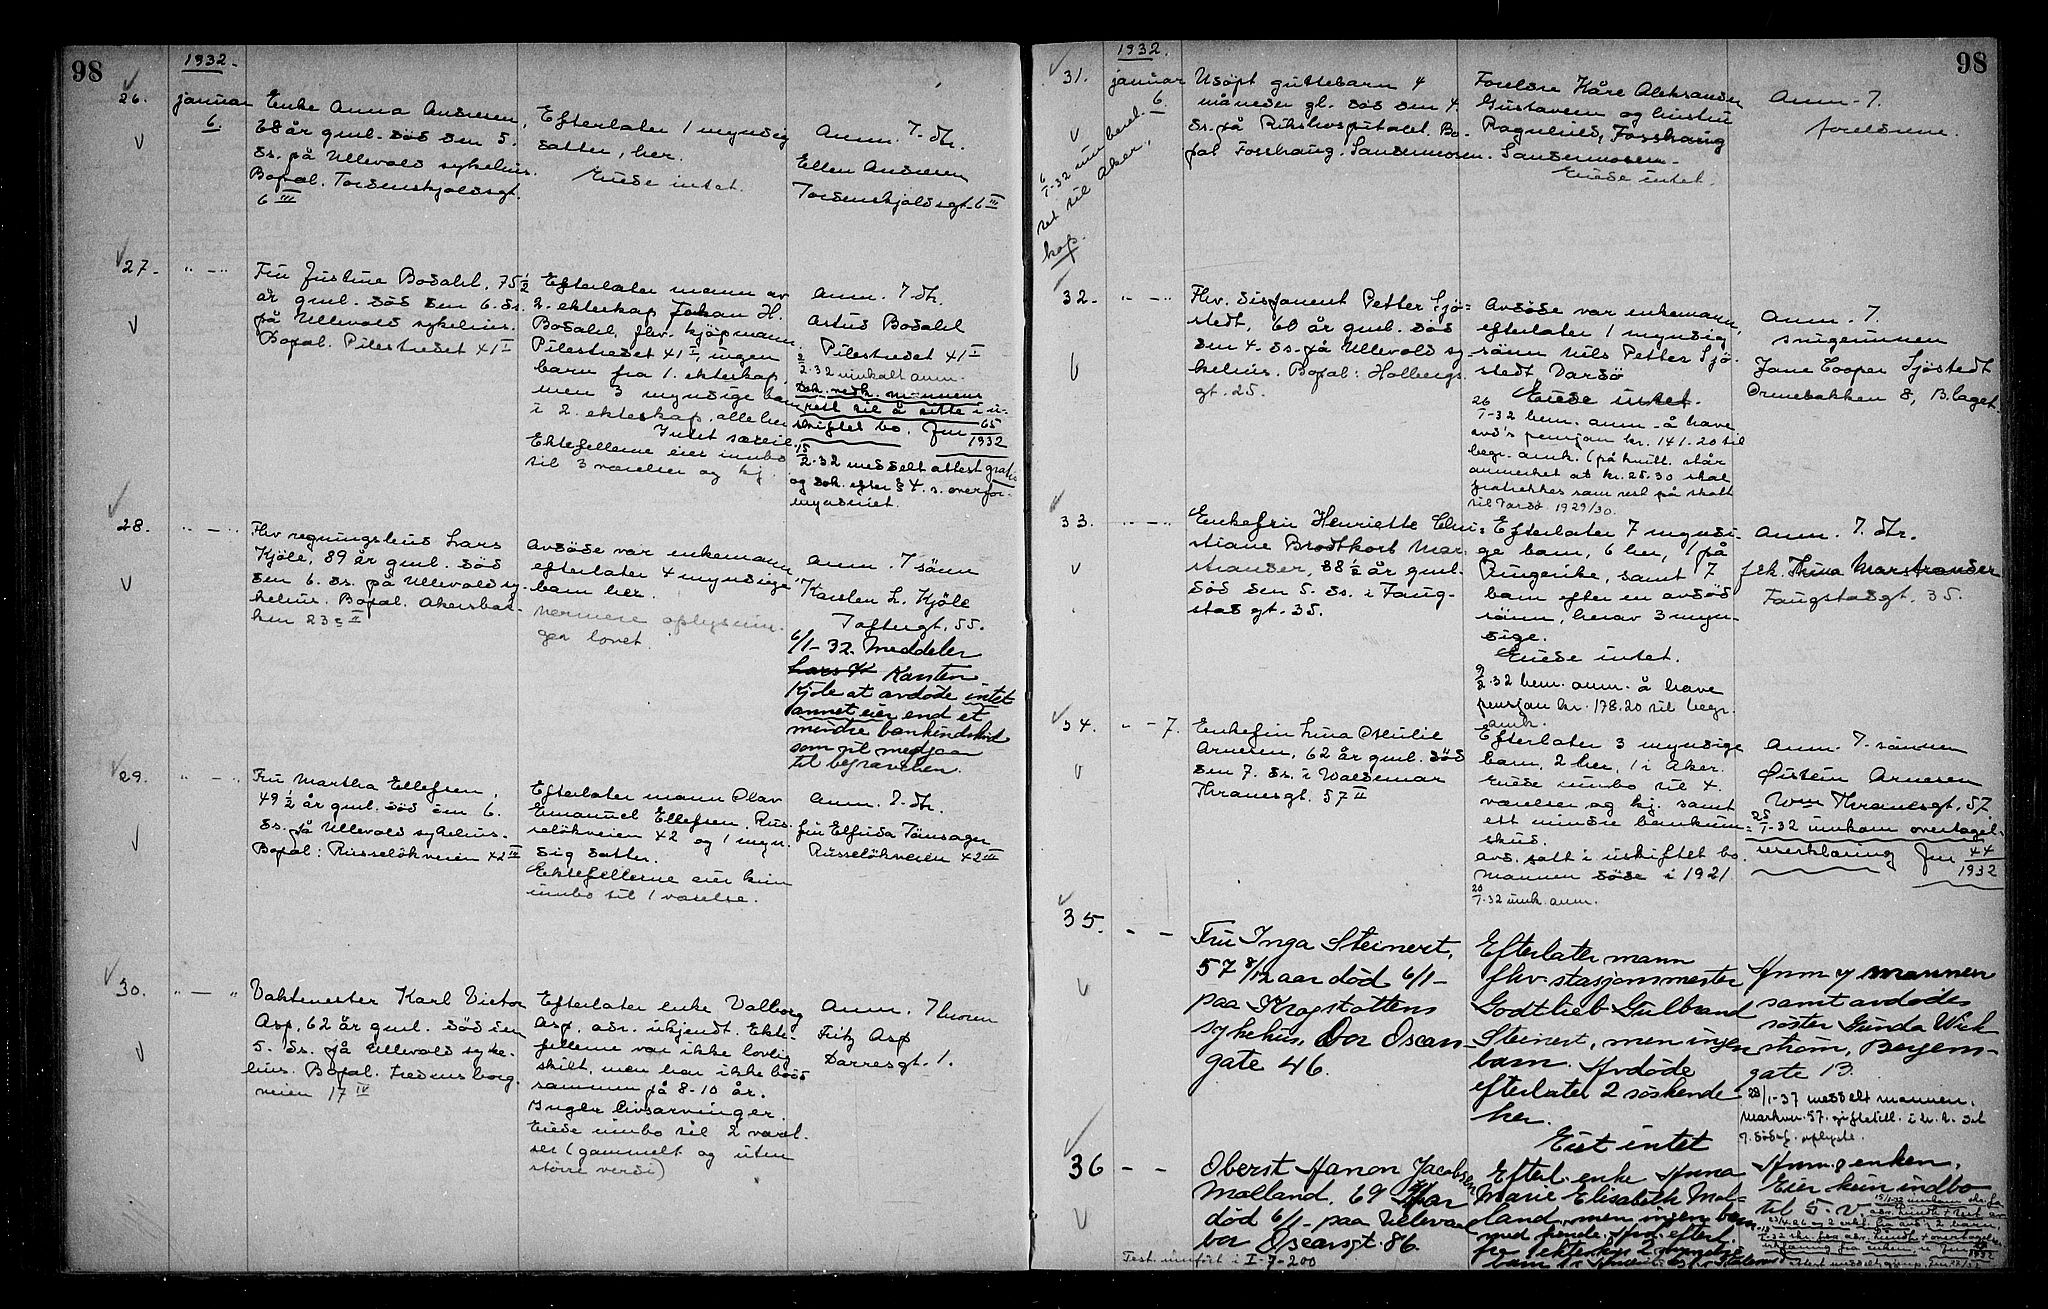 98
1932.
26.
januar
6.
Enke Anna Andresen,
68 år gml. död den 5.
ds. på Ullevold sykehus.
Bopæl. Tordenskjoldsgt.
6 III
Efterlater 1 myndig
datter, her.
Eiede intet.
Anm. 7. dtr.
Ellen Andresen
Tordenskjoldsgt. 6 III
27. " — "
Fru Justine Bodahl, 75 1/2
år gml. död den 6. ds.
på Ullevold sykehus.
Bopæl. Pilestredet 41 I
Efterlater mann av
2. ekteskap Johan H.
Bodahl, fhv. kjöpmann,
Pilestredet 41 I, ingen
barn fra 1. ekteskap,
men 3 myndige barn
i 2. ekteskap, alle her
Intet særeie.
Ektefellene eier innbo
til 3 værelser og kj.
Anm. 7 dtr.
Astrid Bodahl
Pilestredet 41 I
9/2-32 innkalt anm.
Dok. vedk. mannens
rett til å sitte i u-
skiftet bo. Jnr 65/1932
15/2-32 meddelt attest gratis
og dok. efter § 4. s. overfor-
mynderiet.
28. " — "
Fhv regningsbud Lars
Kjöle, 89 år gml. död
den 6. ds. på Ullevold sy-
kehus. Bopæl. Akersbak-
ken 23 c II
Avdöde var enkemann
efterlater 4 myndige
barn her.
nærmere oplysnin-
ger lovet.
Anm. 7 sönn
Karsten L. Kjöle
Toftesgt. 55.
6/1-32. Meddeler
Karsten
Kjöle at avdöde intet
annet eier end et
mindre bankindskud
som vil medgaa
til begravelsen.
29. " — "
Fru Martha Ellefsen,
49 1/2 år gml. död den 6.
ds. på Ullevold sykehus.
Bopæl: Russelökveien 42 III
Efterlater mann Olav
Emanuel Ellefsen, Rus-
selökveien 42 og 1 myn-
dig datter.
Ektefellerne eier kun
innbo til 1 værelse.
Anm. 7. dtr.
fru Elfrida Tönsager
Russelökveien 42 III
30. " — "
Vaktmester Karl Victor
Asp, 62 år gml. död den
5. ds. på Ullevold syke-
hus. Bopæl. Fredensborg-
veien 17 IV
Efterlater enke Valborg
Asp, adr. ukjendt. Ekte-
fellerne var ikke lovlig
skilt, men har ikke bodd
sammen på 8-10 år.
Ingen livsarvinger.
Eiede innbo til 2 værel-
ser (gammelt og uten
större verdi)
Anm. 7 broren
Fritz Asp
Darresgt. 1.
98
1932.
31.
januar
6.
Udöpt guttebarn 4
måneder gl. död den 4.
ds. på Rikshospitalet. Bo-
pæl Fosshaug. Sandermosen.
Foreldre Kåre Aleksander
Gustavsen og hustru
Ragnhild, Fosshaug
Sandermosen.
Eiede intet.
Anm. 7.
foreldrene.
6/1-32 innberet-
tet til Aker.
kap.
32. " — "
Fhv. disponent Petter Sjö-
stedt, 60 år gml. död
den 4. ds. på Ullevold sy-
kehus. Bopæl: Holbergs
gt. 25.
Avdöde var enkemann,
efterlater 1 myndig
sönn Nils Petter Sjö-
stedt Vardö
Eiede intet.
26/1-32 bem. anm. å have
avd's pensjon kr. 141.20 til
begr. omk. (på kvitt. står
anmerket at kr. 25.30 skal
fratrekkes som rest på skatt
til Vardö 1929/30.
Anm. 7.
svigerinnen
Jane Cooper Sjöstedt
Ormebakken 8, B.laget.
33. " — "
Enkefru Henriette Chri-
stiane Brodtkorb Mar-
strander, 88 1/2 år gml.
död den 5. ds. i Faug-
stad gt. 35.
Efterlater 7 myndi-
ge barn, 6 her, 1 på
Ringerike, samt 7
barn efter en avdöd
sönn, herav 3 myn-
dige.
Eiede intet.
9/2-32 bem. anm. å have
pensjon kr. 178.20 til begr.
omk.
Anm. 7. dtr.
frk. Thina Marstrander
Faugstadgt. 35.
34. " — 7.
Enkefru Lina Otilie
Arnesen, 62 år gml. död
den 7. ds. i Waldemar
Thranesgt. 57 II
Efterlater 3 myndige
barn, 2 her, 1 i Aker.
Eiede innbo til 4
værelser og kj. samt
ett mindre bankinn-
skud.
avd. satt i uskiftet bo.
Mannen döde i 1921
20/1-32 innk. anm.
Anm. 7. sönnen
Øistein Arnesen
Wm Thranesgt. 57.
25/1-32 innkom overtagel-
seserklæring Jnr 44/1932
35. — —
Fru Inga Steinert,
57 8/12 aar död 6/1-
paa Krogstöttens
sykehus, Bor Oscars-
gate 46.
Efterlater mann
fhv. stasjonsmester
Godtlieb Gulbrand
Steinert, men ingen
barn. Avdöde
efterlater 2 söskende
her.
Eiet intet
Anm 7 mannen
samt avdödes
söster Gunda Wick
ström, Bergens-
gate 13.
28/1-37 meddelt mannen.
36 — —
Oberst Hanon Jacobsen
Molland, 69 aar
död 6/1- paa Ullevaal
bor Oscarsgt. 86.
Test. innfört i I-7-200
Efterl. enke Anna
Marie Elisabeth Mol-
land, men ingen barn
med hende.
Anm. 7 enken.
Eier kun indbo
til 5. v.